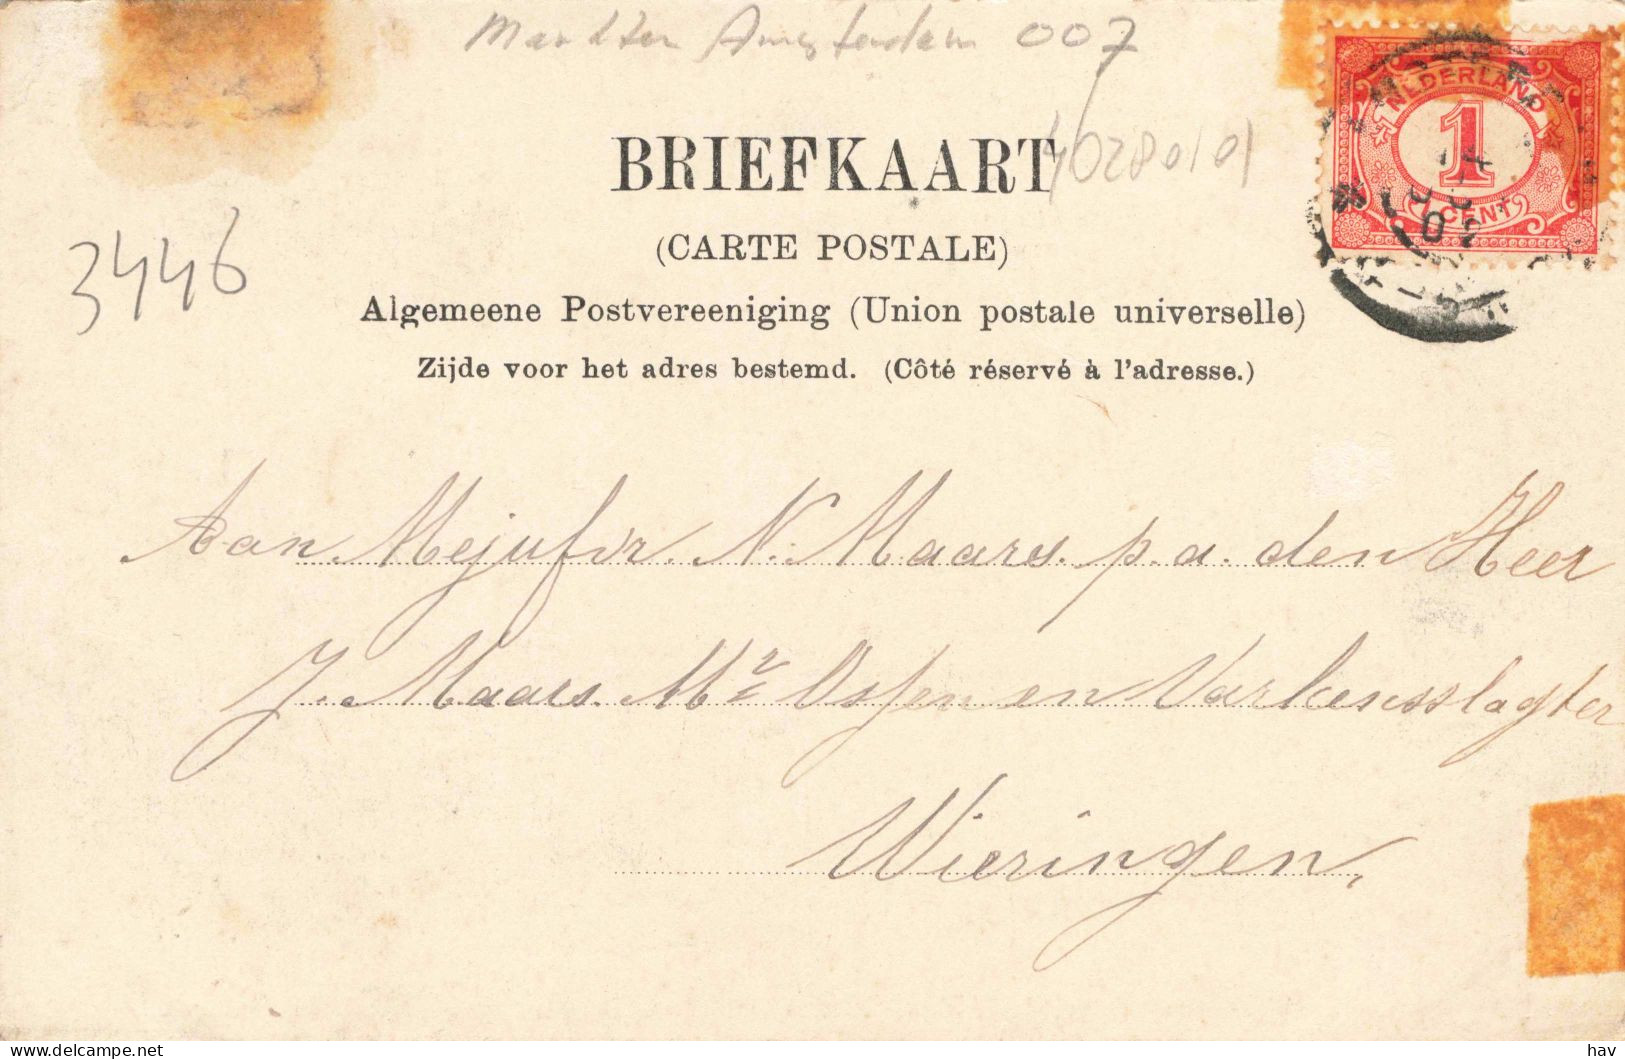 Amsterdam 007
BRIEFKAART
40280101
(CARTE POSTALE)
3446
Algemeene Postvereeniging (Union postale universelle)
Zijde voor het adres bestemd. (Côté réservé à l'adresse.)
NEDERLAND
1
1 CENT
Aan Mejufvr. N. Maars. p.a. den Heer
J. Maars. Mr Ossen en Varkensslagter
Wieringen.
delcampe.net
hav